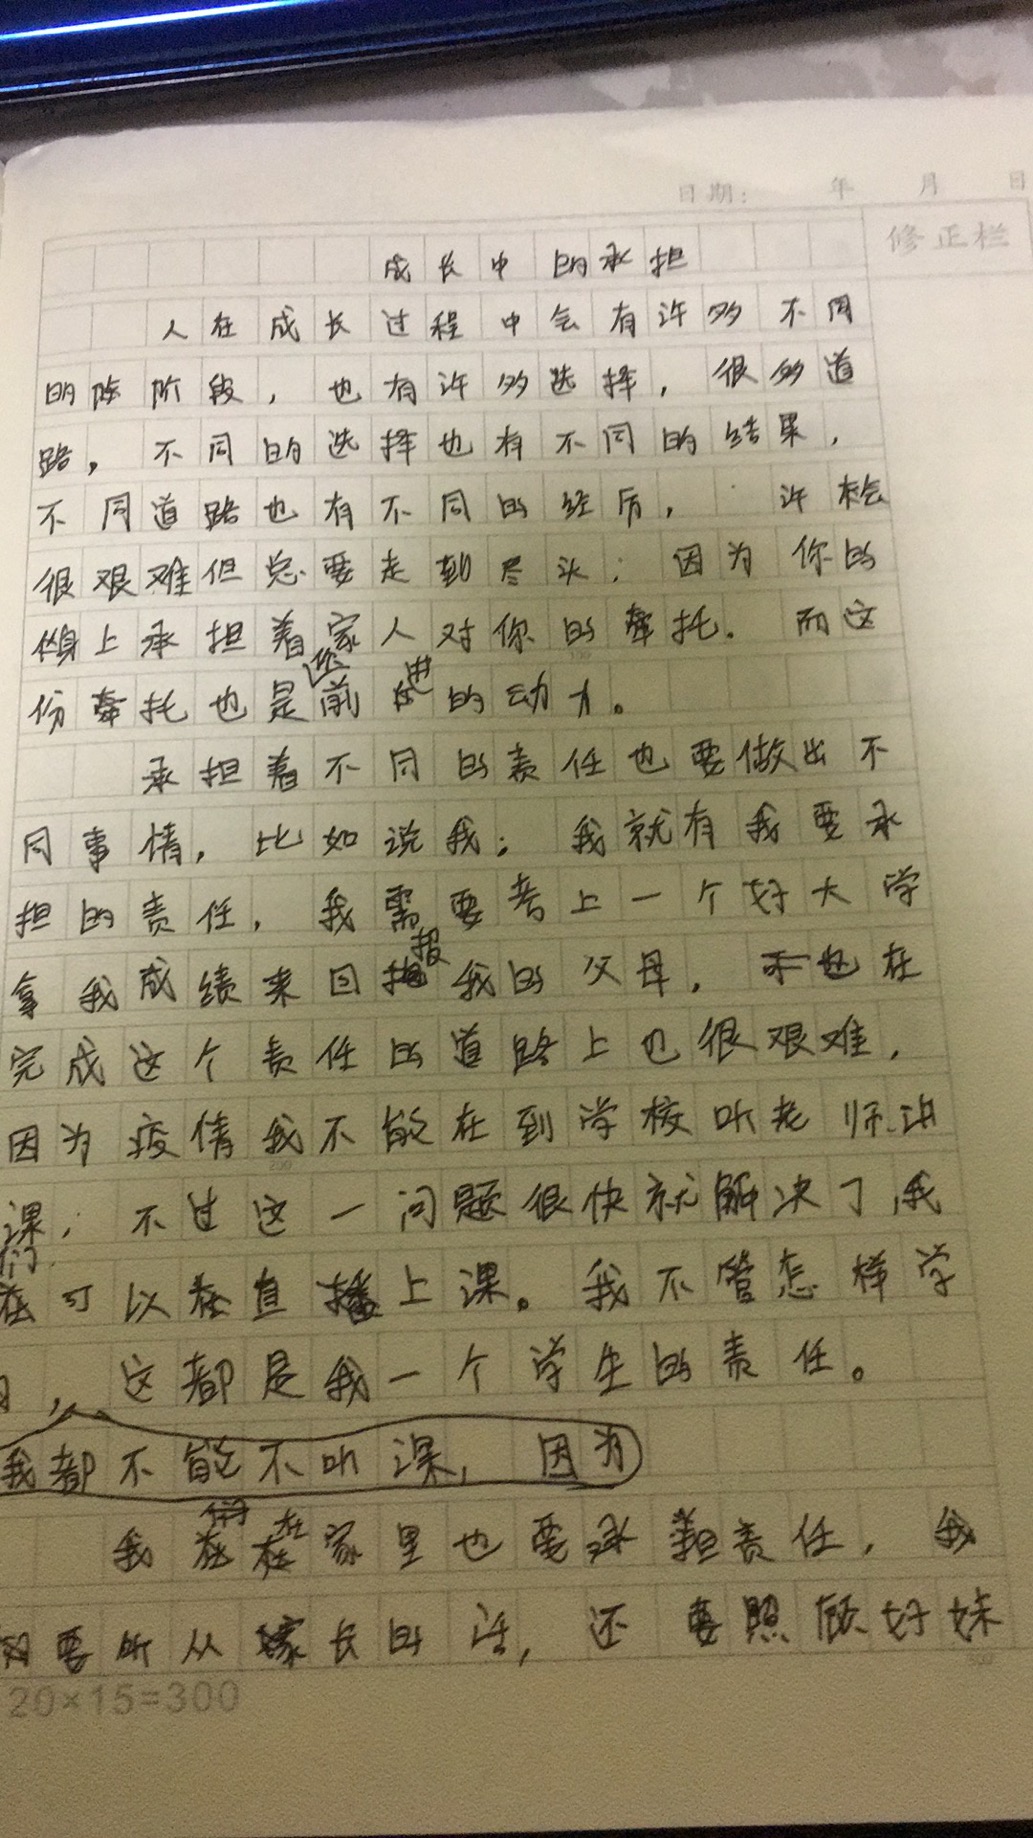 日期： 年 月 日
修正栏
成长中的承担
人在成长过程中会有许多不同
的阶段，也有许多选择，很多道
路，不同的选择也有不同的结果，
不同道路也有不同的经历，许会
很艰难但总要走到尽头；因为你的
身上承担着家人对你的牵托。而这
份牵托也是你前进的动力。
承担着不同的责任也要做出不
同事情，比如说我；我就有我要承
担的责任，我需要考上一个好大学
拿我成绩来回报我的父母，在
完成这个责任的道路上也很艰难，
因为疫情我不能在到学校听老师讲
课；不过这一问题很快就解决了，我
们可以在直播上课。我不管怎样学
习，这都是我一个学生的责任。
我都不能不听课，因为
我在家里也要承担责任，我
要听从家长的话，还要照顾好妹
20×15=300